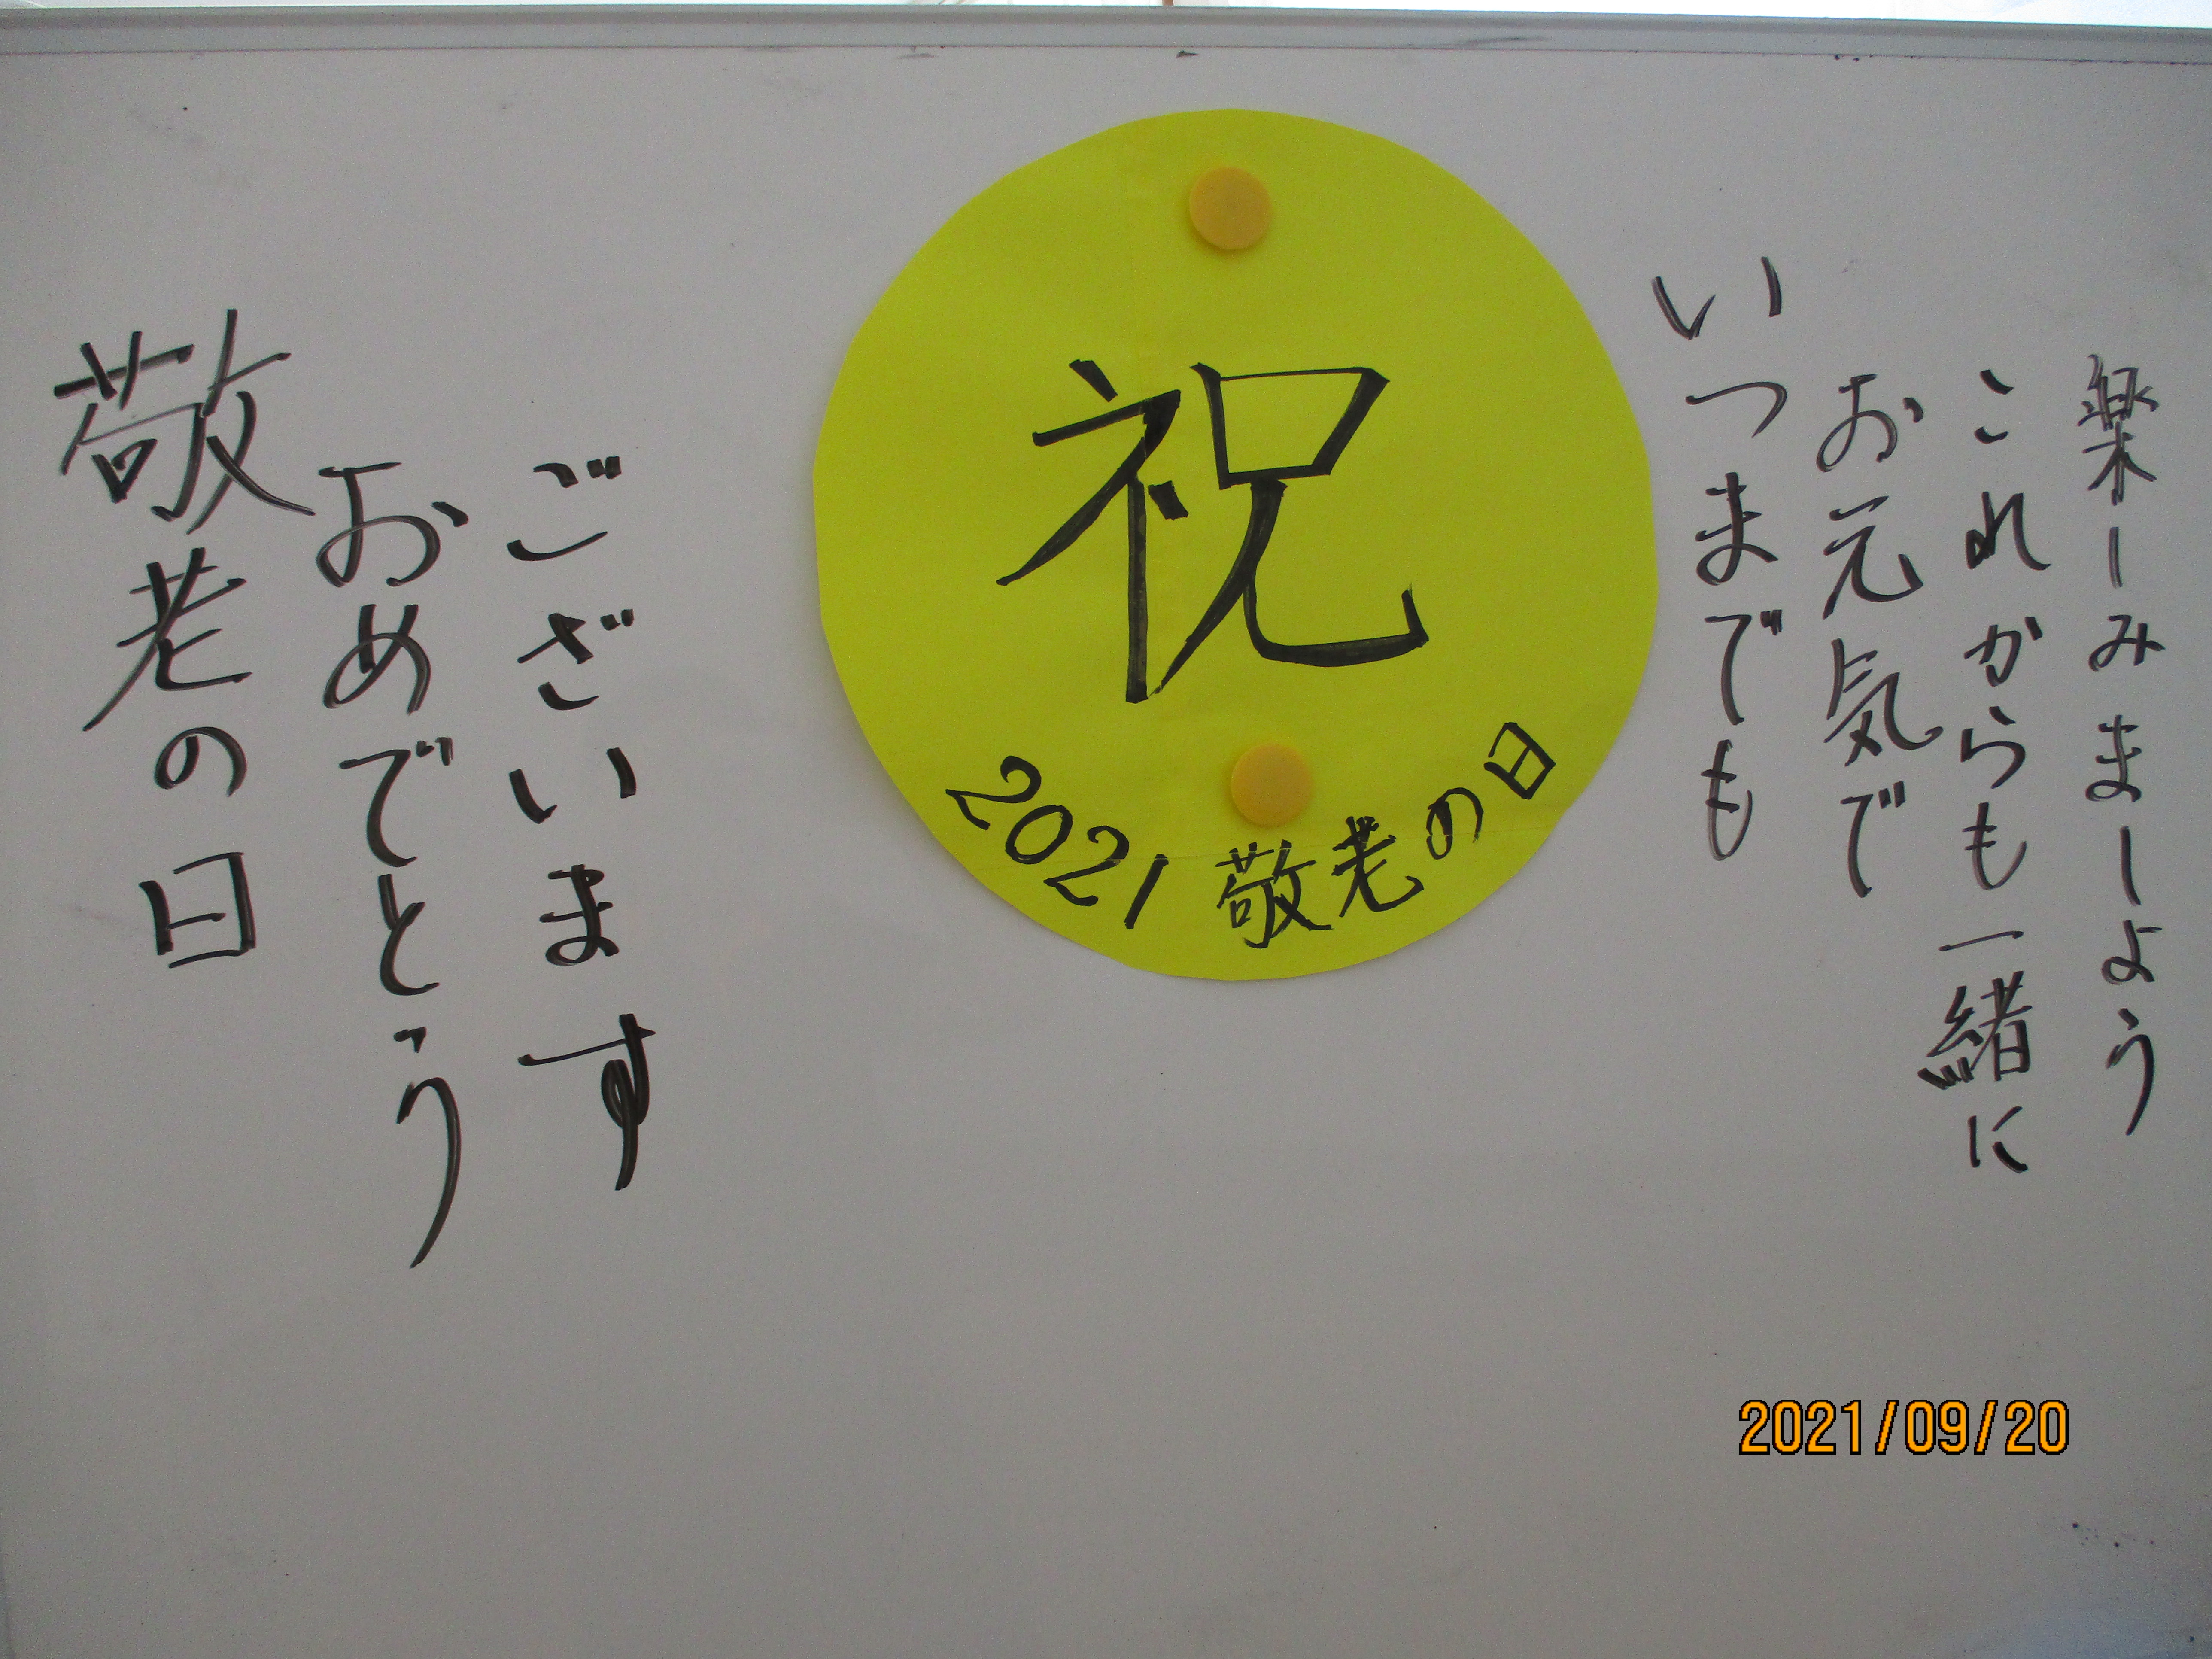 敬老の日
おめでとう
ございます
祝
2021 敬老の日
いつまでも
お元気で
これからも一緒に
楽しみましょう
2021/09/20